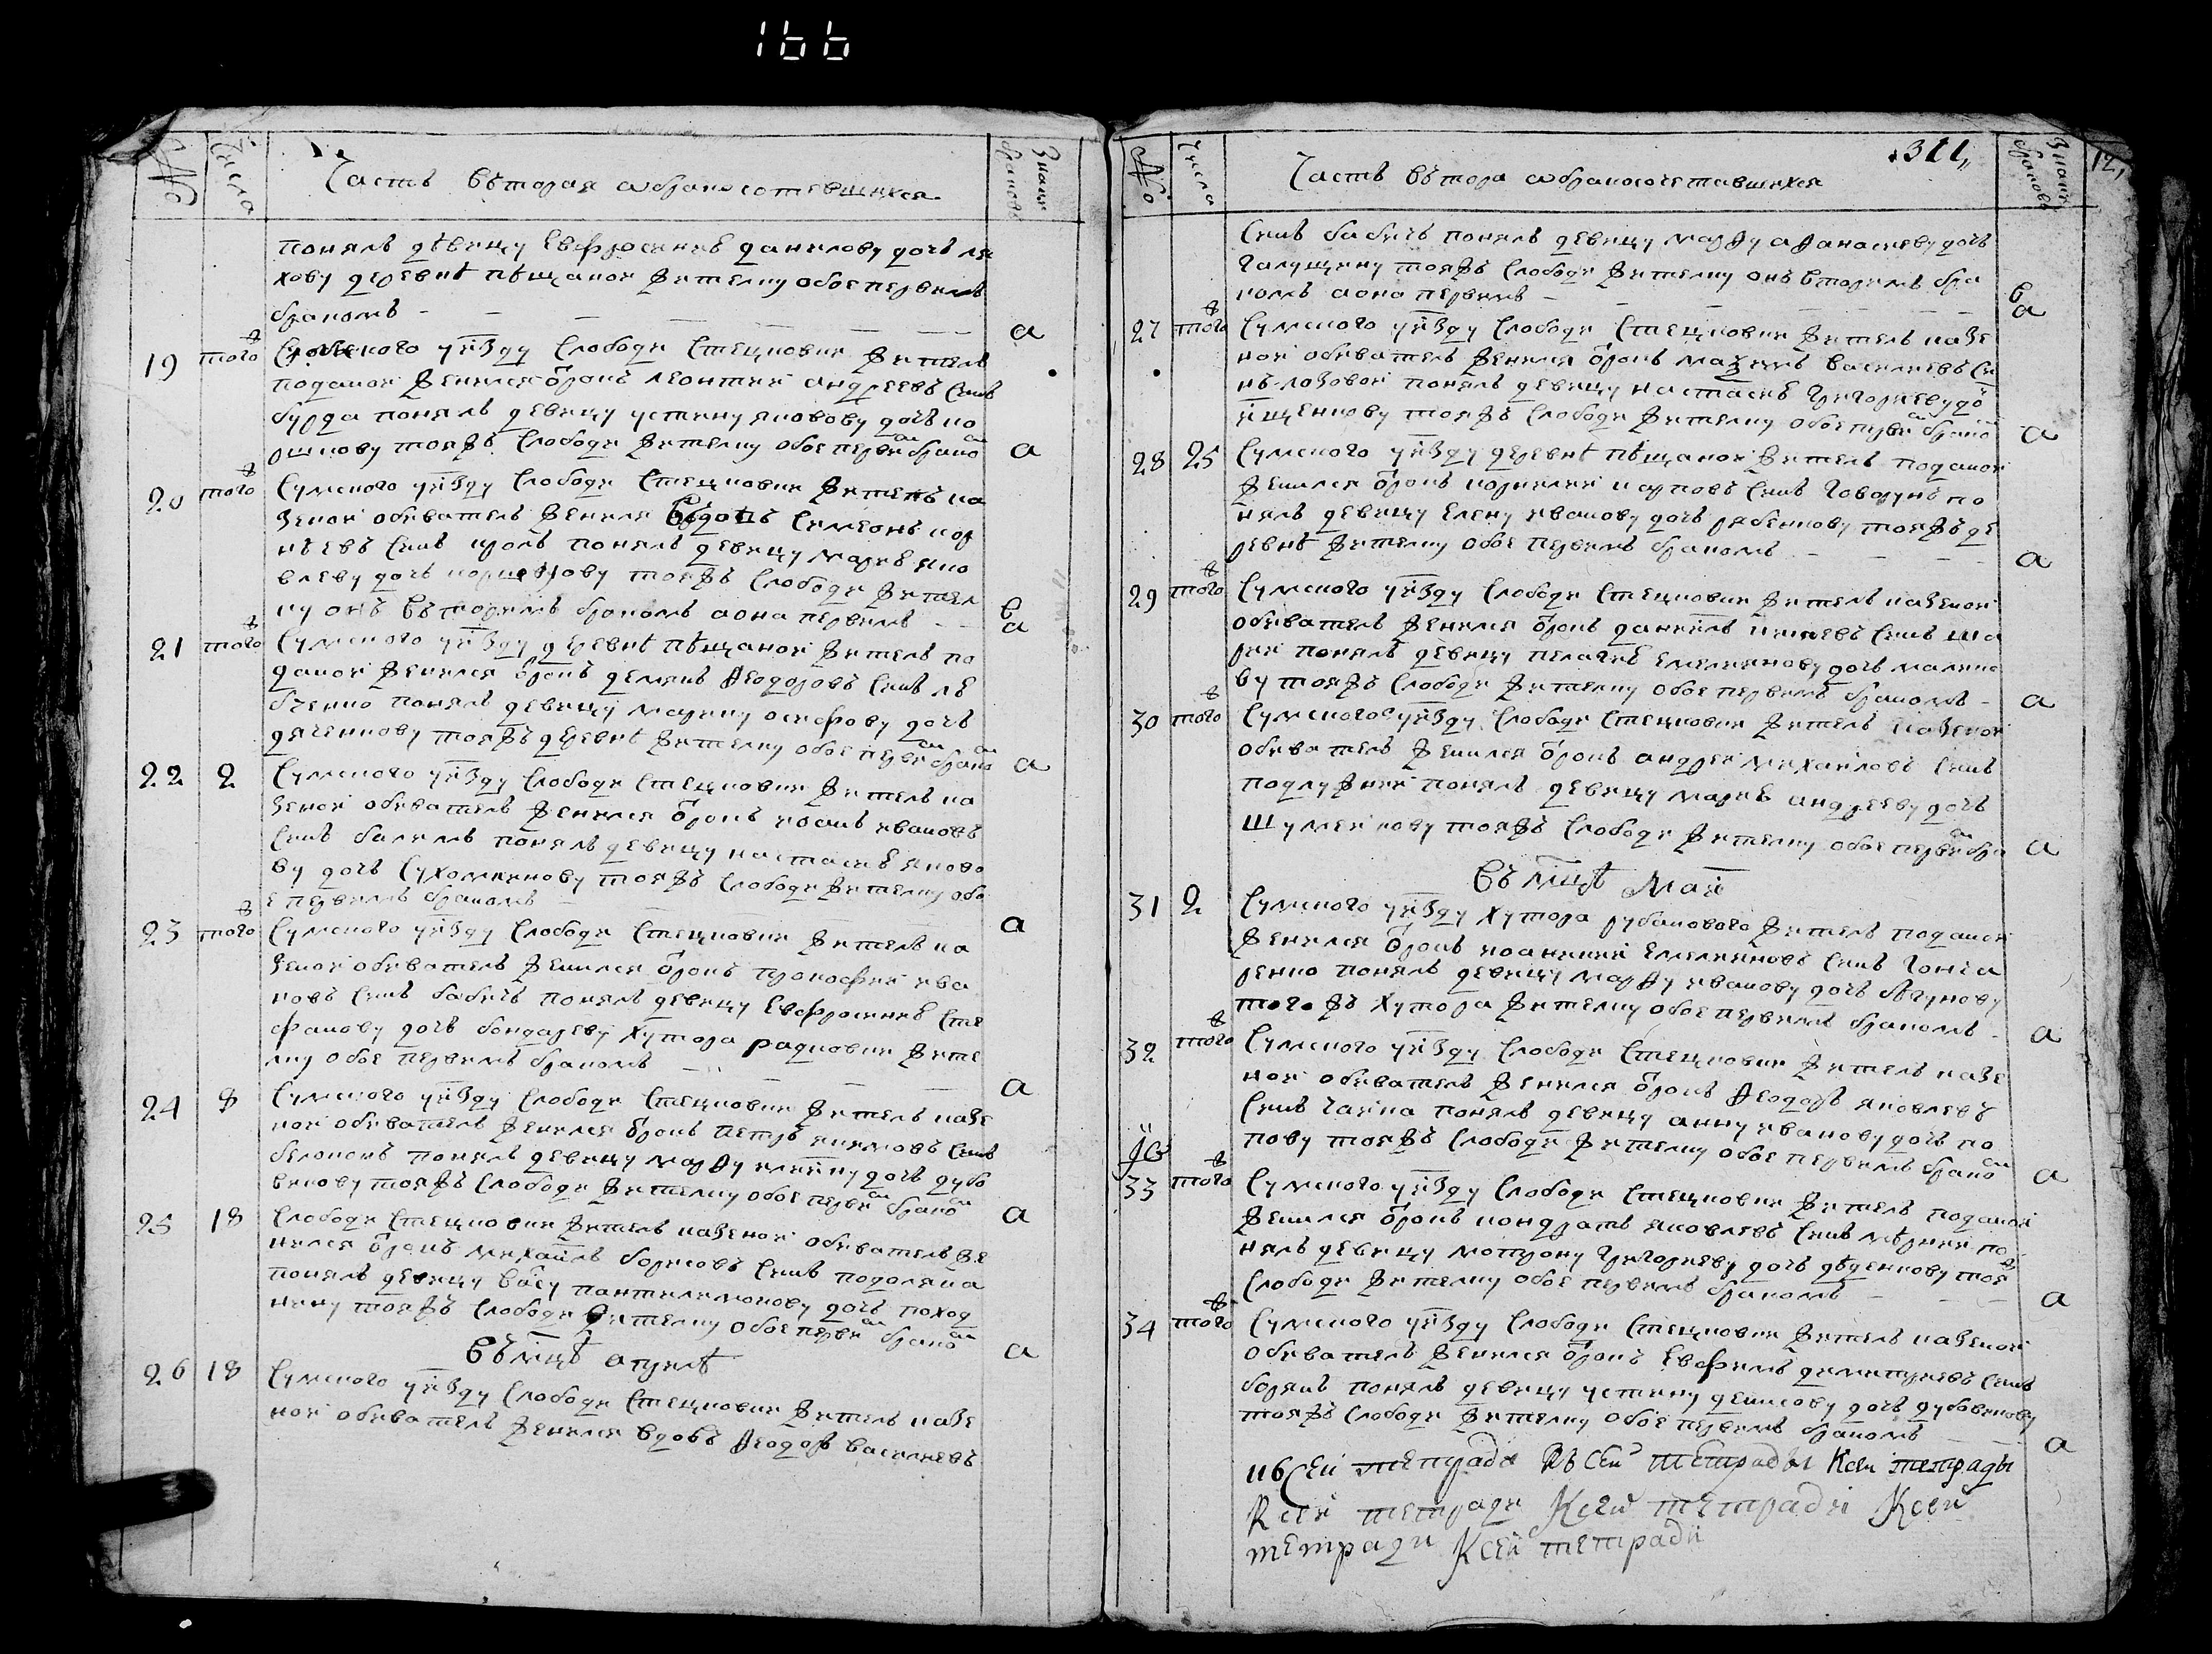 166
№
Числа
Часть вторая о бракосотевшихся
Знаки браковъ
понялъ девицу евфросинию данилову дочь ля
хову деревне песчаной жителку обое первымъ
бракомъ
а
19
тогож
Сумского уезду слободы стецковки житель
поданой женился отрокъ леонтий андреевъ сынъ
бурда понялъ девицу устину яковову дочь ко
ошкову тояжъ слободы жителку обое первым браком
а
20
тогож
Сумского уезду слободы стецковки житель ка
зеной обиватель женился вдовъ симеонъ кор
неевъ сынъ кроль понялъ девицу марию яко
влеву дочь тояжъ слободы жител
ку онъ вторымъ бракомъ аона первымъ
в
а
21
тогож
Сумского уезду деревне песчаной житель по
даной женился отрокъ демянъ феодоровъ сынъ ля
бченко понялъ девицу марину осифову дочь
дяченкову тояжъ деревне жителку обое первым браком
а
22
2
Сумского уезду слободы стецковки житель ка
зеной обиватель женился отрокъ иоанъ ивановъ
сынъ балымъ понялъ девицу настасию яково
ву дочь сухомлинову тояжъ слободы жителку обо
е первымъ бракомъ
а
23
тогож
Сумского уезду слободы стецковки житель ка
зеной обиватель женился отрокъ прокофий ива
новъ сынъ бабичъ понялъ девицу евфросинию сте
фанову дочь бондареву хутора радковки жите
лку обое первымъ бракомъ
а
24
8
Сумского уезду слободы стецковки житель казе
ной обиватель женился отрокъ петръ якимовъ сынъ
белоконь понялъ девицу марфу илiину дочь дубо
викову тояжъ слободы жителку обое первым браком
а
25
18
Слободы стецковки житель казеной обиватель же
нился отрокъ михаилъ борисовъ сынъ подоляка
понялъ девицу васу пантелимонову дочь поход
нину тояжъ слободы жителку обое первым браком
а
въ мцѣ апрелѣ
26
18
Сумского уезду слободы стецковки житель казе
ной обиватель женился вдовъ феодоръ василиевъ
№
Числа
Часть втора о бракосочетавшихся
311
Знаки браковъ
12
сынъ бабичъ понялъ девицу марфу афанасиеву дочь
галущину тояжъ слободы жителку онъ вторымъ бра
комъ аона первымъ
в
а
27
тогож
Сумского уезду слободы стецковки житель казе
ной обиватель женился отрокъ максимъ василиевъ сы
нъ лозовой понялъ девицу настасию григориеву до
ищенкову тояжъ слободы жителку обое первым браком
а
28
25
Сумского уезду деревне песчаной житель поданой
женился отрокъ корнилий карповъ сынъ говорунъ по
нялъ девицу елену иванову дочь рябенкову тояжъ де
ревне жителку обое первымъ бракомъ
а
29
тогож
Сумского уезду слободы стецковки житель казеной
обиватель женился отрокъ даниилъ сынъ ша
рий понялъ девицу пелагию емелиянову дочь малико
ву тояжъ слободы жителку обое первымъ бракомъ
а
30
тогож
Сумского уезду слободы стецковки житель казеной
обиватель женился отрокъ андрей михаиловъ сынъ
подлужний понялъ девицу марию андрееву дочь
шумейкову тояжъ слободы жителку обое первым бра
а
въ мцѣ маи
31
2
Сумского уезду хутора рубановаго житель поданой
женился отрокъ иоаникий емелияновъ сынъ гонча
ренко понялъ девицу марфу иванову дочь бугунову
тогожъ хутора жителку обое первымъ бракомъ
а
32
тогож
Сумского уезду слободы стецковки житель казе
ной обиватель женился отрокъ феодоръ яковлевъ
сынъ чайка понялъ девицу анну иванову дочь по
пову тояжъ слободы жителку обое первымъ браком
а
33
тогож
Сумского уезду слободы стецковки житель поданой
женился отрокъ кондратъ яковлевъ сынъ мерний по
нялъ девицу мотрону григориеву дочь деденкову тояж
слободы жителку обое первымъ бракомъ
а
34
тогож
Сумского уезду слободы стецковки житель казеной
обиватель женился отрокъ евфимъ димитриевъ сынъ
борякъ понялъ девицу устину денисову дочь дубовикову
тояжъ слободы жителку обое первымъ бракомъ
а
сей тетради къ сей тетради Ксеи тетрады
К сей тетради Ксей тетради Ксей
тетради Ксей тетради